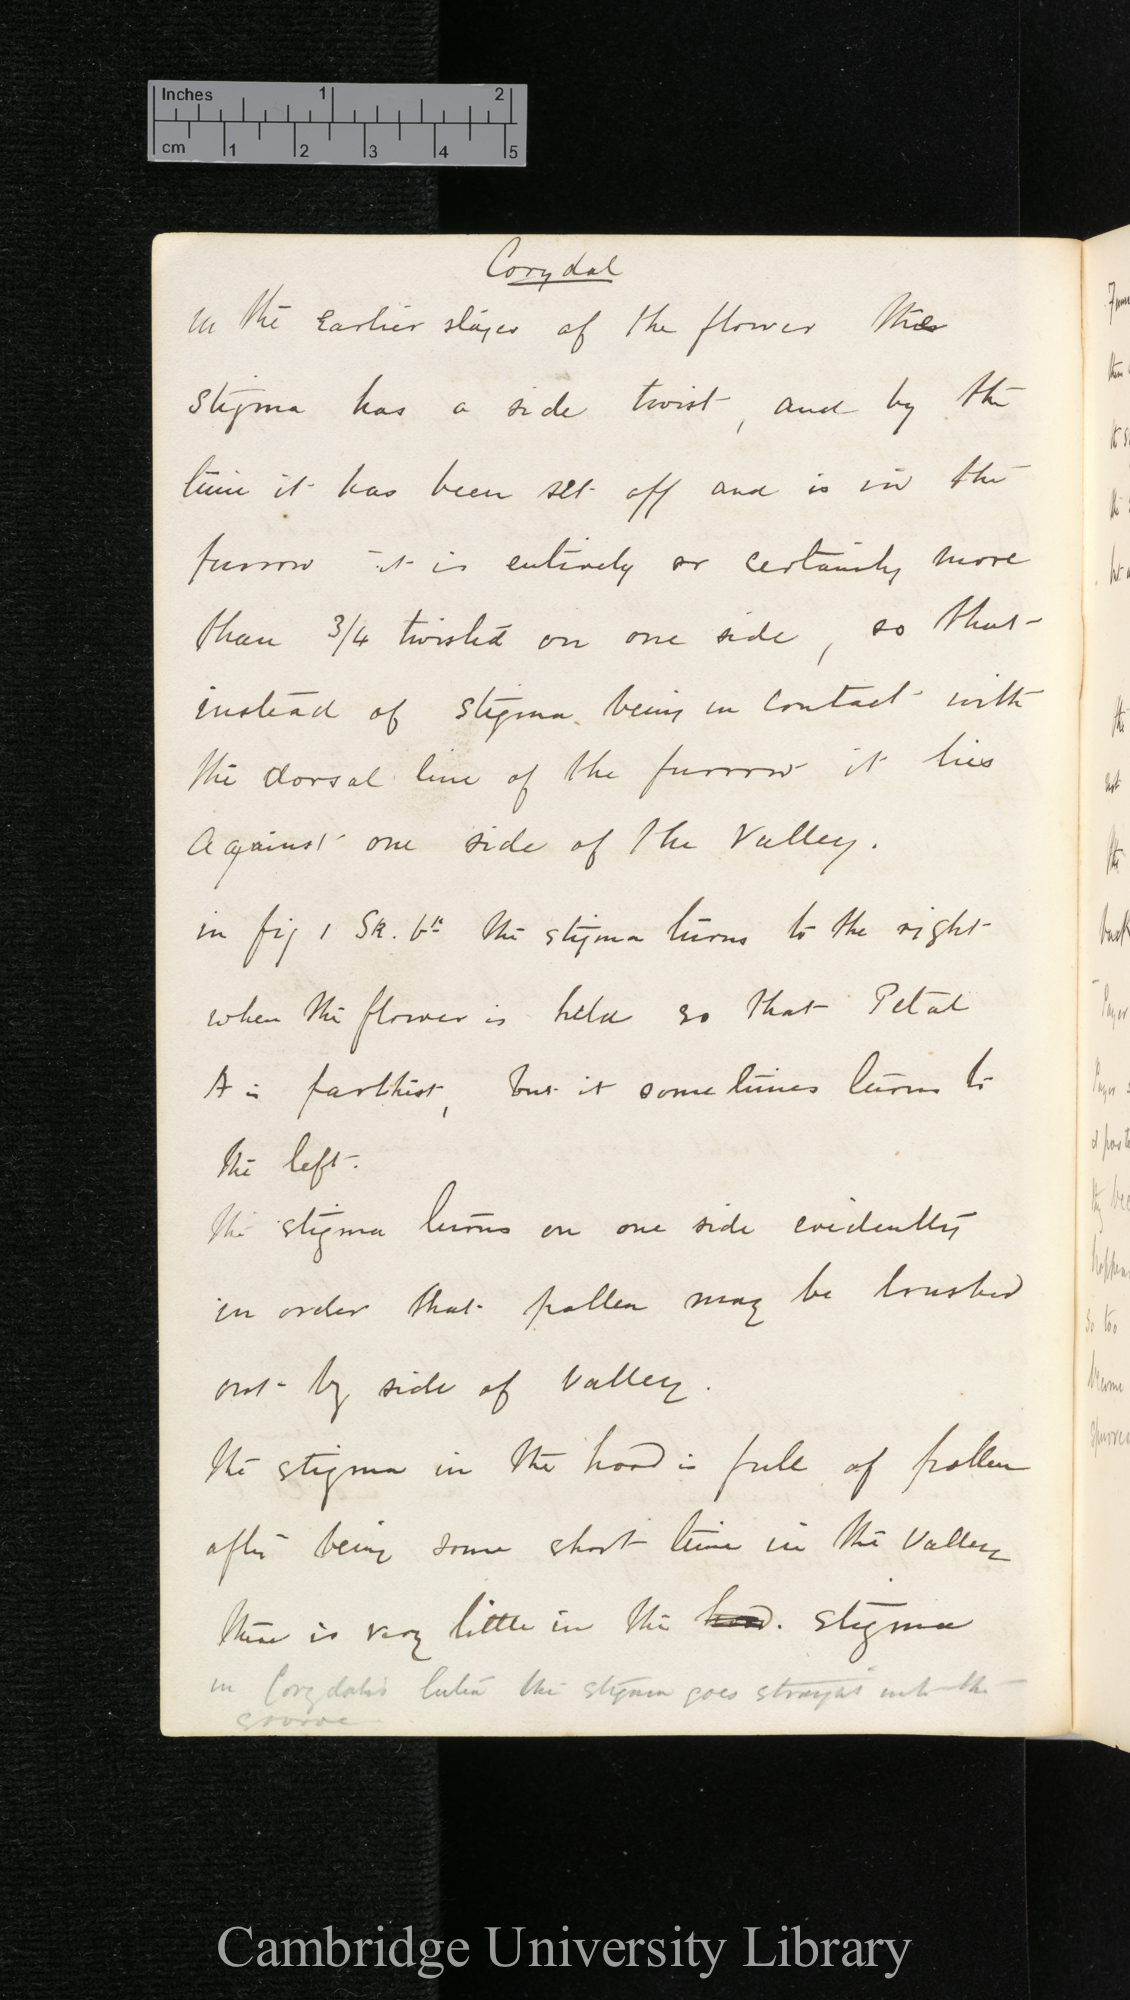 Inches 1 2
cm 1 2 3 4 5
Corydal
In the Earlier stages of the flower the
stigma has a side twist, and by the
time it has been set off and is in the
furrow it is entirely or certainly more
than 3/4 twisted on one side, so that
instead of stigma being in contact with
the dorsal line of the furrow it lies
against one side of the Valley.
in fig 1 Sk. bk the stigma turns to the right
when the flower is held so that Petal
A is farthest, but it sometimes turns to
the left.
The stigma turns on one side evidently
in order that pollen may be brushed
out by side of Valley.
The stigma in the hood is full of pollen
after being some short time in the Valley
there is very little in the hood. stigma
in Corydalis lutea the stigma goes straight into the
groove
Cambridge University Library